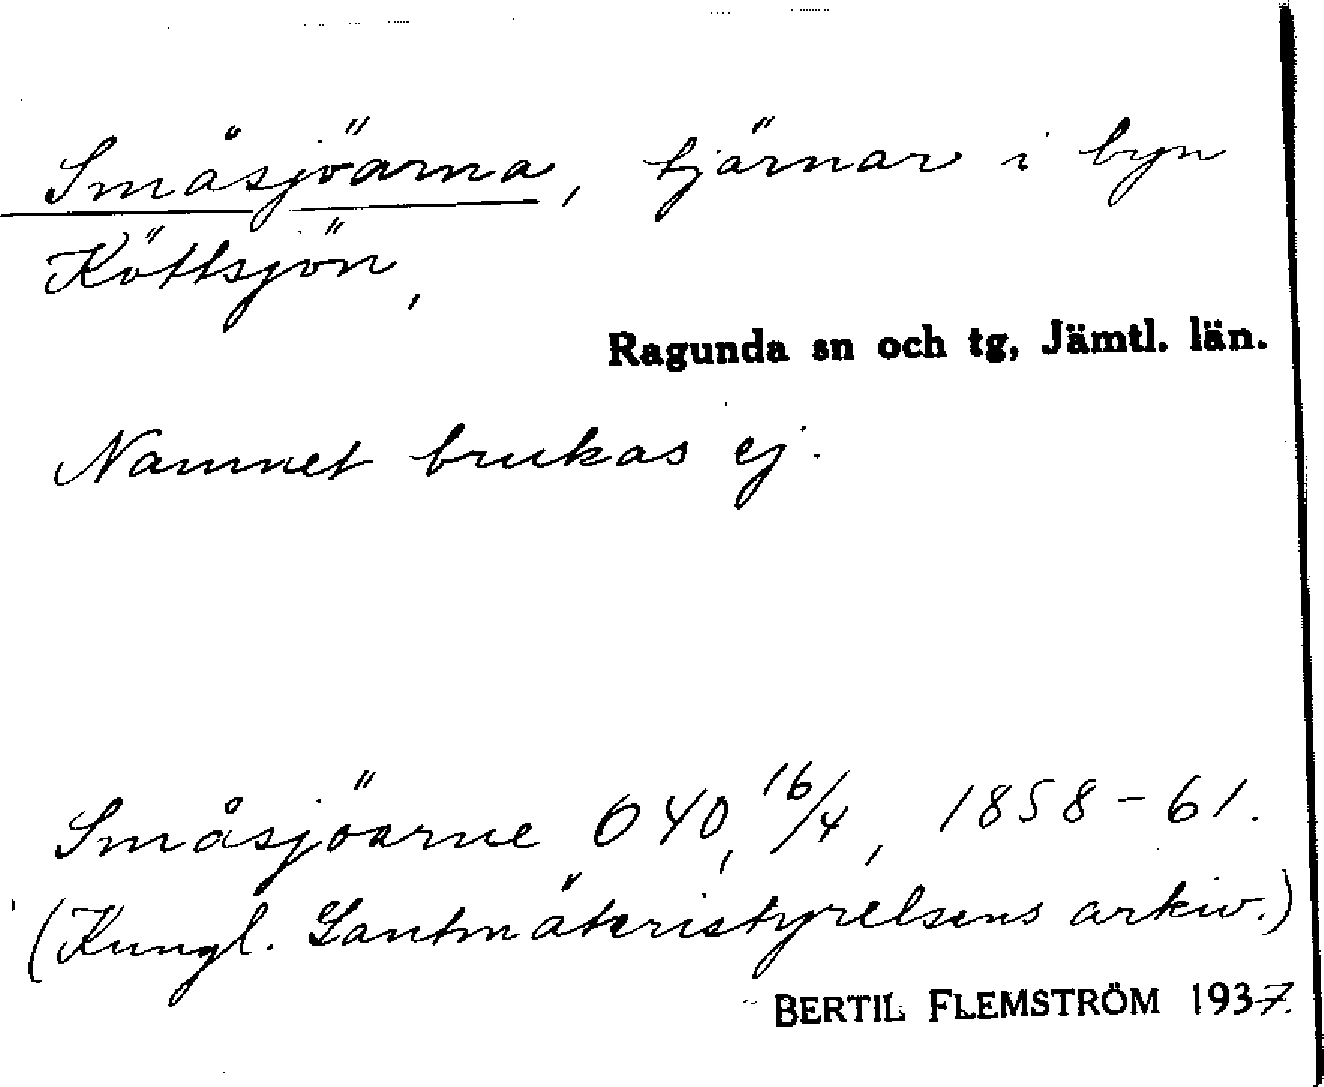 Småsjöarna, tjärnar i byn
Köttsjön,
Ragunda sn och tg, Jämtl. län.
Namnet brukas ej.
Småsjöarne O40, 16/4, 1858-61.
(Kungl. Lantmäteristyrelsens arkiv.)
BERTIL FLEMSTRÖM 1937.